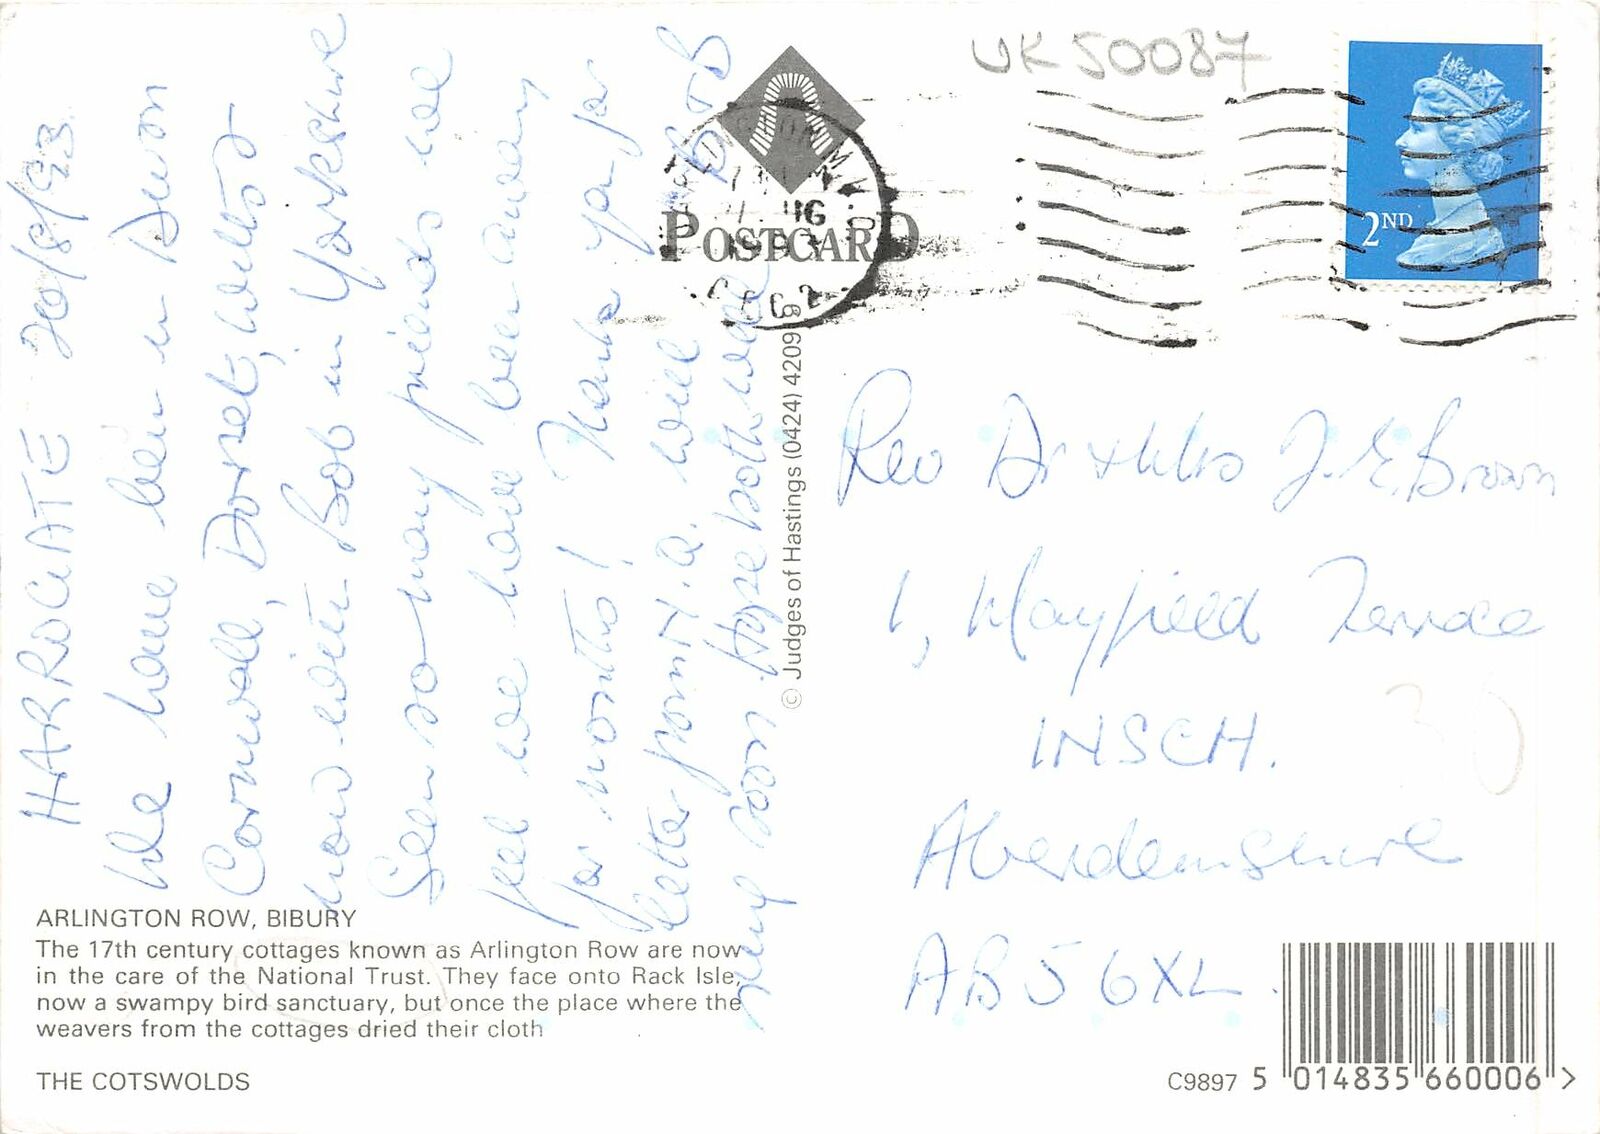 HARROGATE 20/8/93
We have been in Devon
Cornwall, Dorset, Wilts
now with Bob in Yorkshire
Seen so many friends we
feel we have been away
for months! Thank you for
letter from N.a. will
ring soon. Hope both well
Bob
POSTCARD
© Judges of Hastings (0424) 4209
UK50087
2ND
Rev Dr + Mrs J.E. Brown
1, Mayfield Terrace
INSCH.
Aberdeenshire
AB5 6XL.
30
ARLINGTON ROW, BIBURY
The 17th century cottages known as Arlington Row are now
in the care of the National Trust. They face onto Rack Isle,
now a swampy bird sanctuary, but once the place where the
weavers from the cottages dried their cloth
THE COTSWOLDS
C9897 5 014835 660006 >